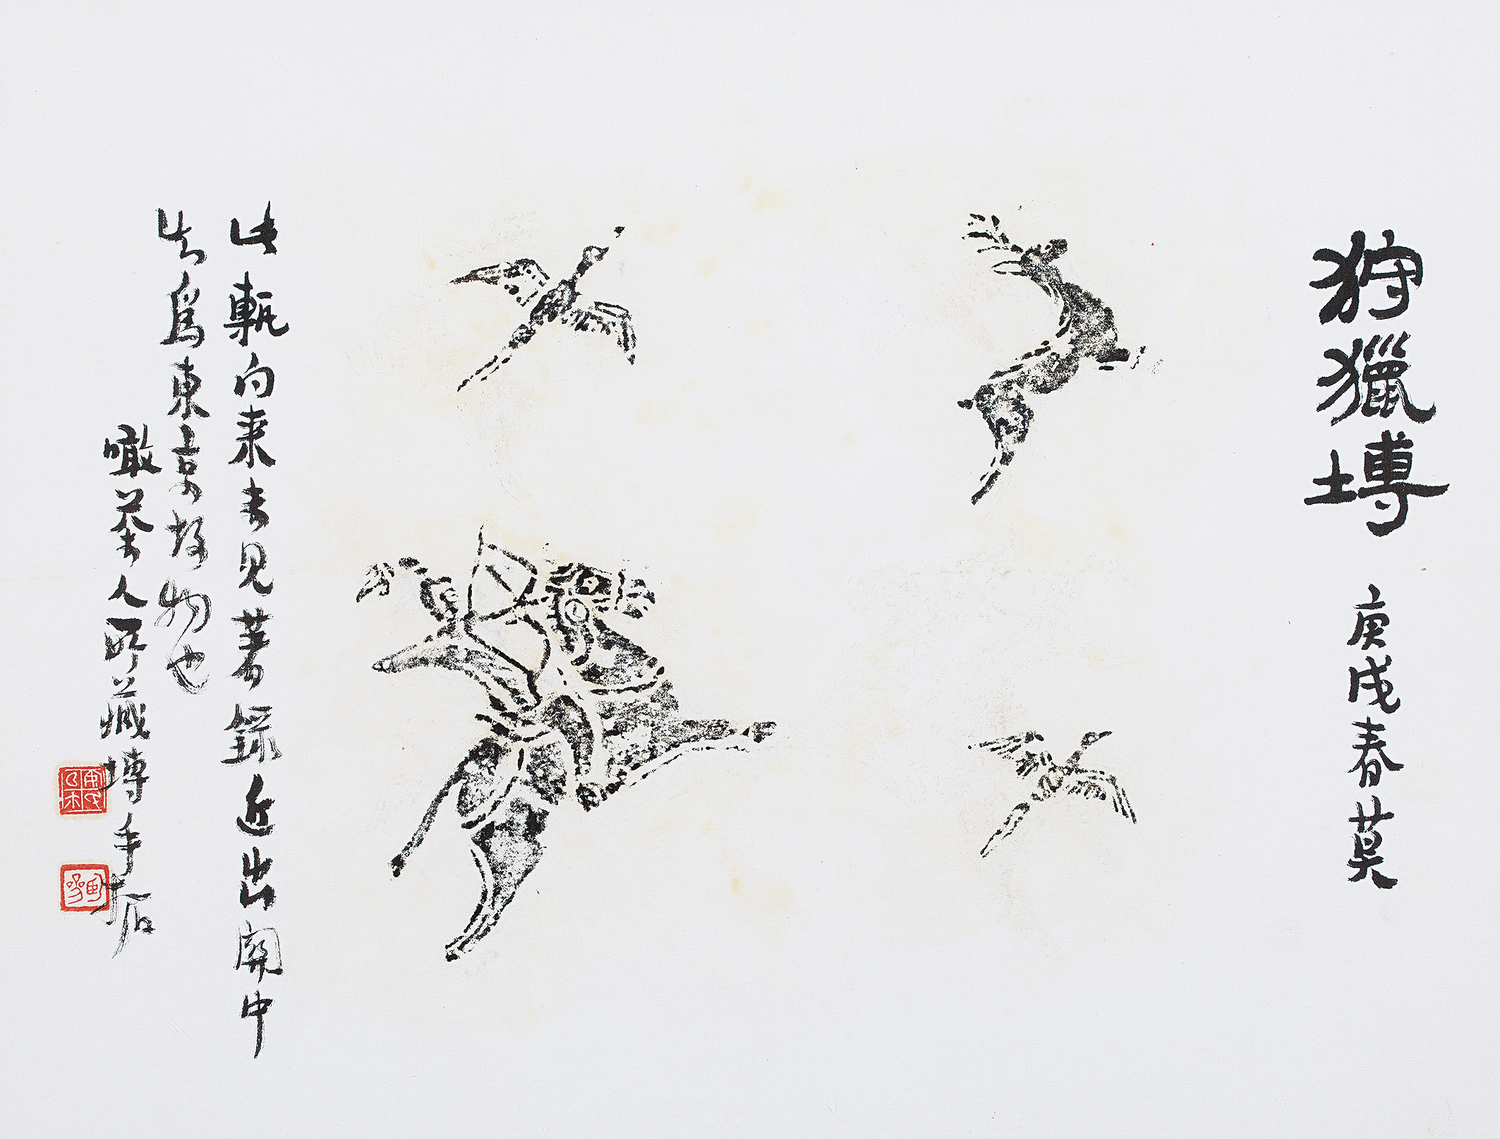 狩獵塼
庚戌春莫
此甎向來未見著録近出關中
當爲東京故物也
噉茶人所藏塼手拓